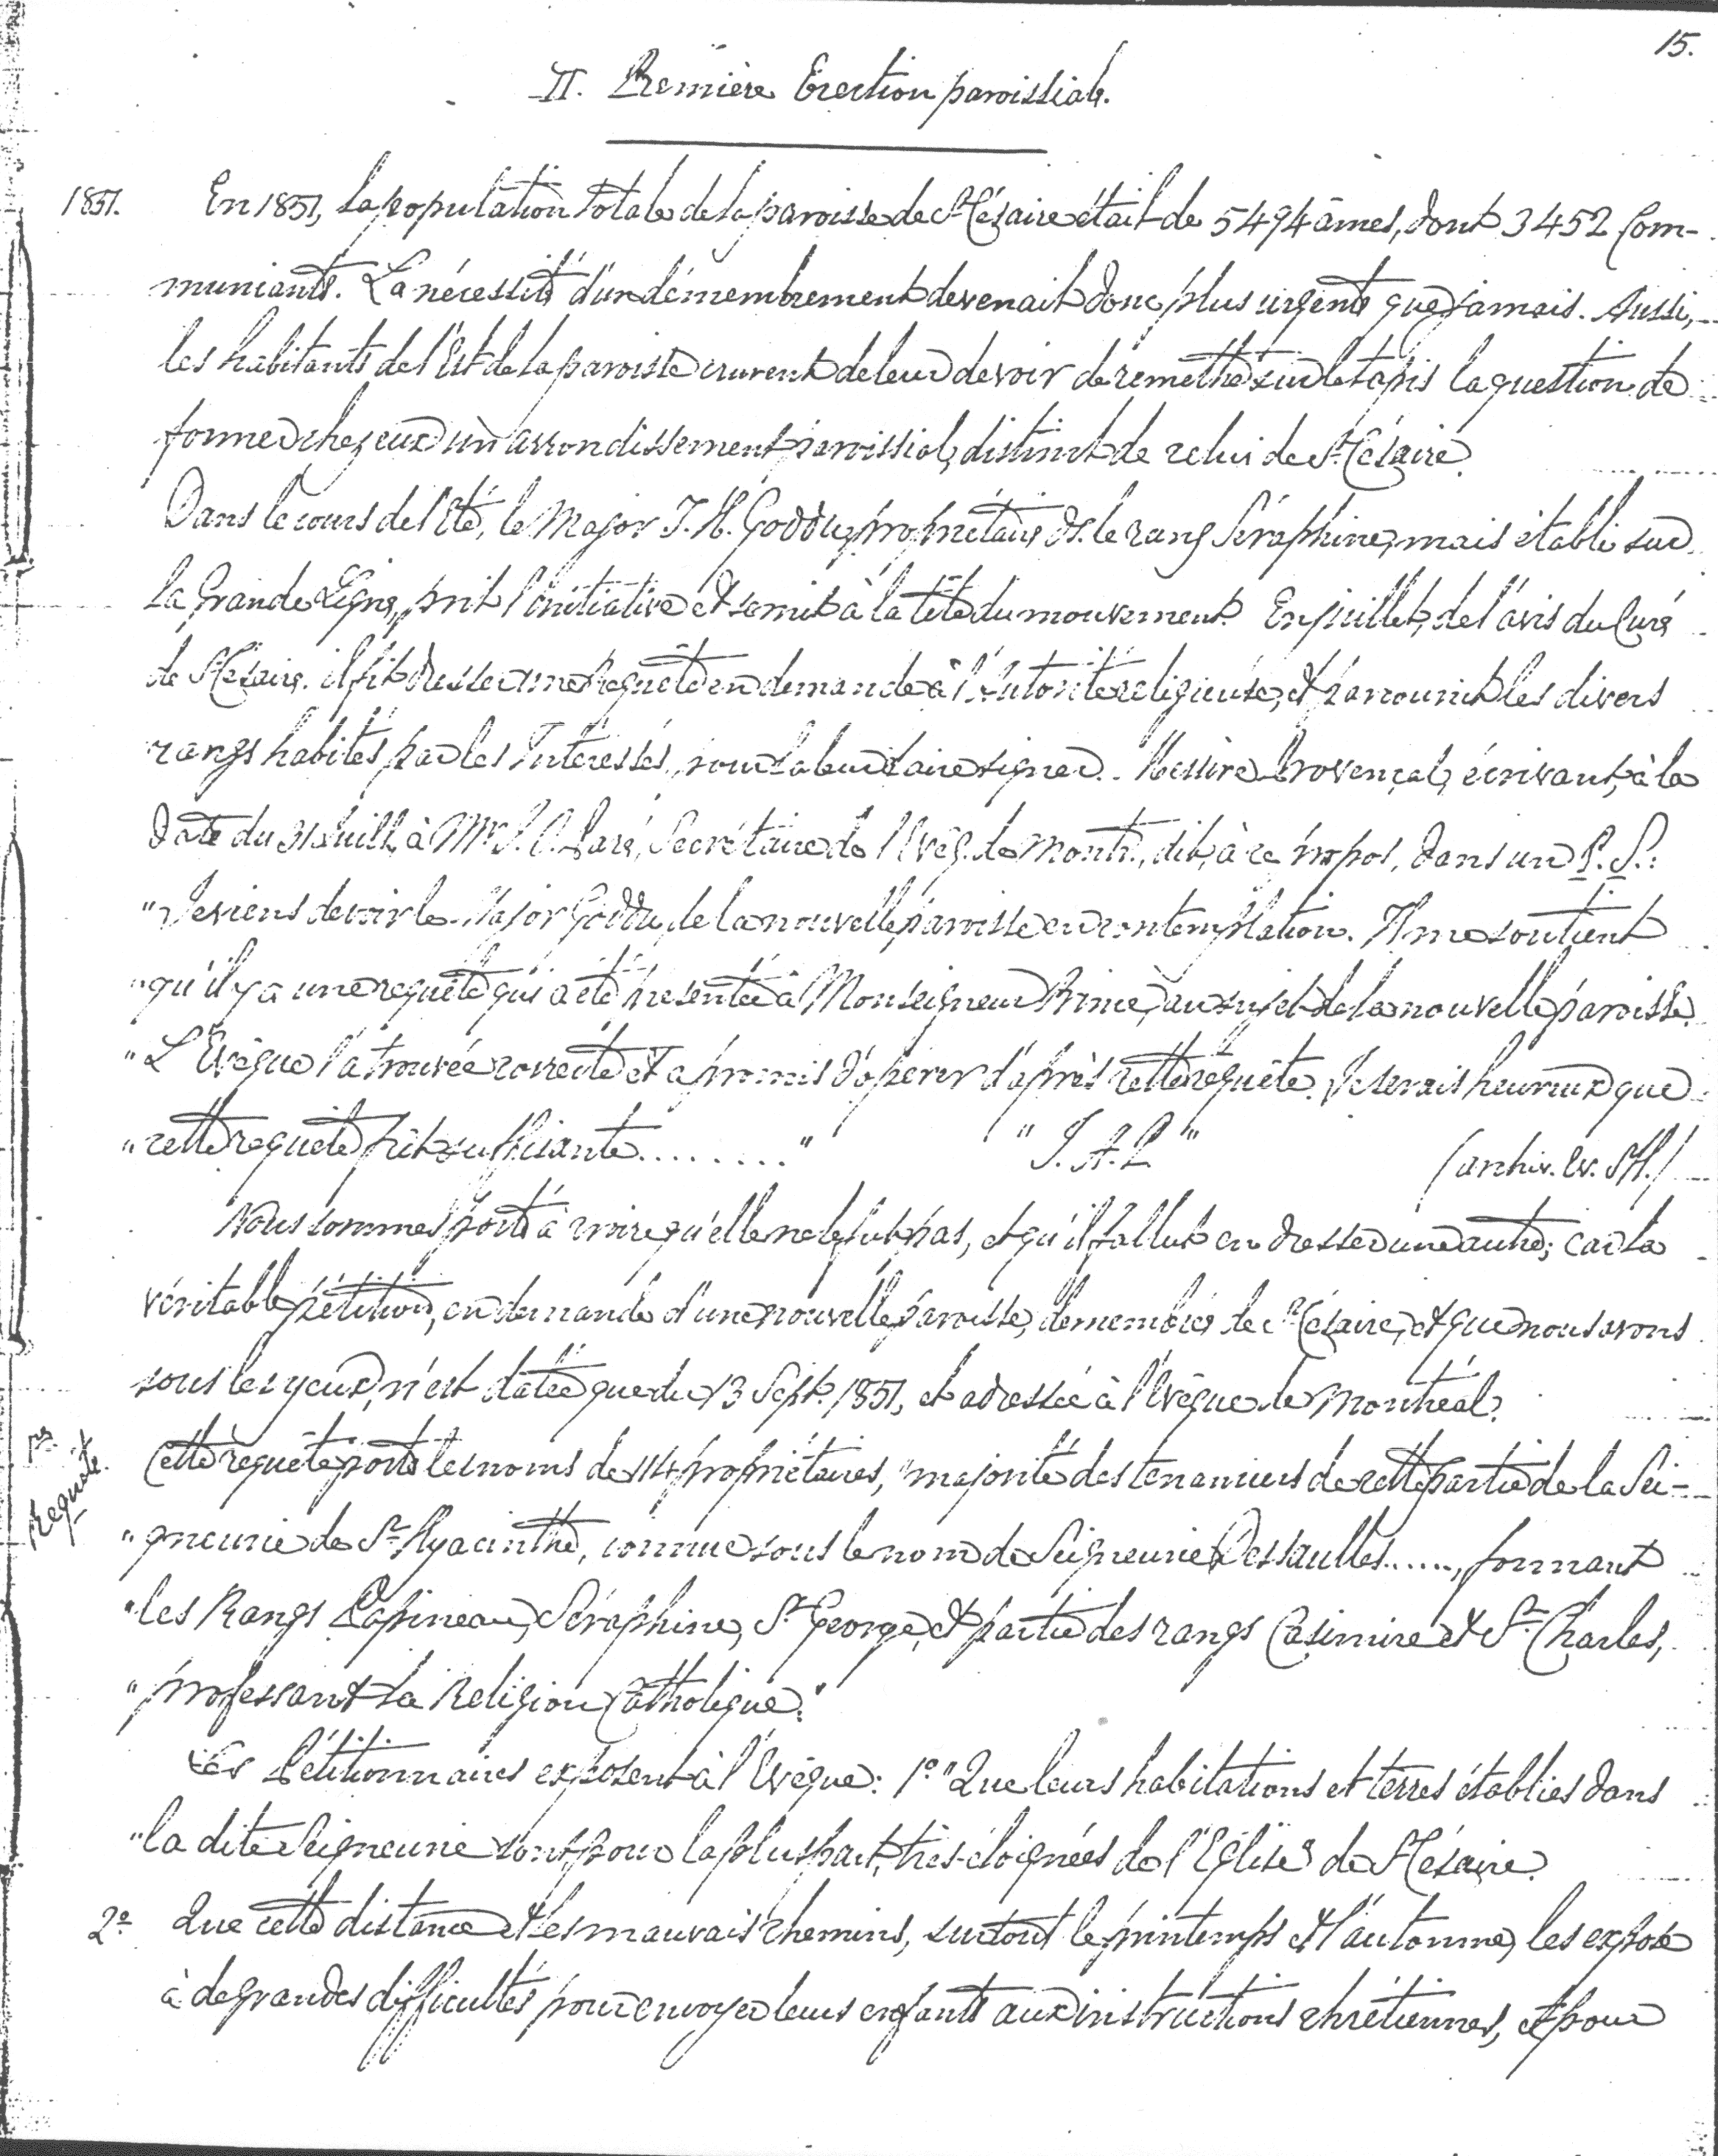 15.
II. Première Erection paroissiale.
1851. En 1851, la population totale de la paroisse de St Césaire était de 5494 âmes, dont 3452 Com-
muniants. La nécessité d'un démembrement devenait donc plus urgente que jamais. Aussi,
les habitants de l'Est de la paroisse crurent de leur devoir de remettre sur le tapis la question de
former chez eux un arrondissement paroissial, distinct de celui de St Césaire.
Dans le cours de l'Eté, le Major J. H. Goddu, propriétaire ds. le rang Séraphine, mais établi sur
la Grande Ligne, prit l'initiative et se mit à la tête du mouvement. En juillet, de l'avis du Curé
de St Césaire, il fit dresser une Requête en demande à l'Autorité religieuse, et parcourut les divers
rangs habités par les Intéressés, pour la leur faire signer. Messire Provençal, écrivant, à la
date du 31 Juill. à Mr J. O. Paré, Secrétaire de l'Evêq. de Montr., dit, à ce propos, dans un P. S.:
"Je viens de voir le Major Goddu, de la nouvelle paroisse en contemplation. Il me soutient
"qu'il y a une requête qui a été présentée à Monseigneur Prince, au sujet de la nouvelle paroisse.
"L'Evêque l'a trouvée correcte et a promis d'opérer d'après cette requête. Je serais heureux que
"cette requête fût suffisante........" "J. A. P." (archiv. Ev. St H.)
Nous sommes porté à croire qu'elle ne le fut pas, et qu'il fallut en dresser une autre; car la
véritable pétition, en demande d'une nouvelle paroisse, démembrée de St Césaire, et que nous avons
sous les yeux, n'est datée que du 13 Sept. 1851, et adressée à l'Evêque de Montréal.
1re Requête. Cette requête porte les noms de 114 propriétaires, "majorité des tenanciers de cette partie de la Sei-
"gneurie de St Hyacinthe, connue sous le nom de Seigneurie Dessaulles......, formant
"les Rangs Papineau, Séraphine, St George, et partie des rangs Casimire et St Charles,
"professant la Religion Catholique."
Les Pétitionnaires exposent à l'Evêque: 1º "Que leurs habitations et terres établies dans
"la dite Seigneurie sont pour la plus part, très-éloignées de l'Eglise de St Césaire.
2º Que cette distance et les mauvais chemins, surtout le printemps et l'automne, les expose
à de grandes difficultés pour envoyer leurs enfants aux instructions chrétiennes, et pour